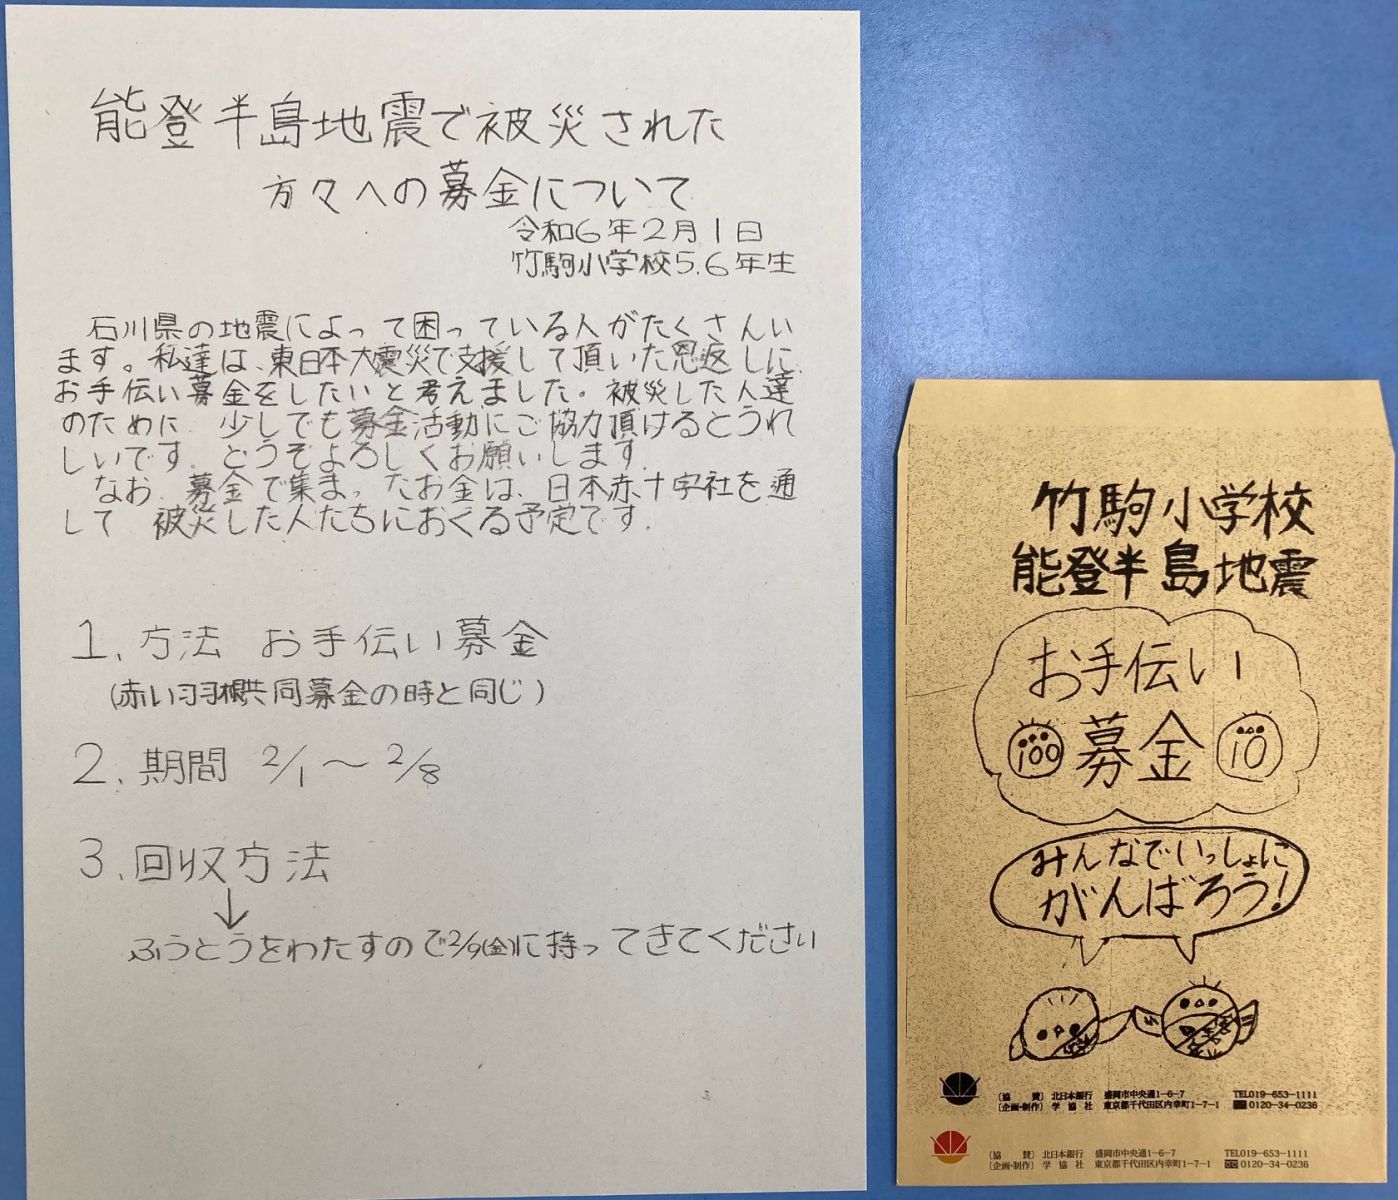 能登半島地震で被災された
方々への募金について
令和6年2月1日
竹駒小学校5.6年生
石川県の地震によって困っている人がたくさんい
ます。私達は、東日本大震災で支援して頂いた恩返しに、
お手伝い募金をしたいと考えました。被災した人達
のために、少しでも募金活動にご協力頂けるとうれ
しいです。どうぞよろしくお願いします。
なお、募金で集まったお金は、日本赤十字社を通
して 被災した人たちにおくる予定です。
1. 方法 お手伝い募金
(赤い羽根共同募金の時と同じ)
2. 期間 2/1〜2/8
3. 回収方法
↓
ふうとうをわたすので2/9(金)に持ってきてください
竹駒小学校
能登半島地震
お手伝い
100 募金 10
みんなでいっしょに
がんばろう!
〔協 賛〕 北日本銀行 盛岡市中央通1-6-7 TEL019-653-1111
〔企画・制作〕 学協社 東京都千代田区内幸町1-7-1 0120-34-0236
〔協 賛〕 北日本銀行 盛岡市中央通1-6-7 TEL019-653-1111
〔企画・制作〕 学協社 東京都千代田区内幸町1-7-1 0120-34-0236